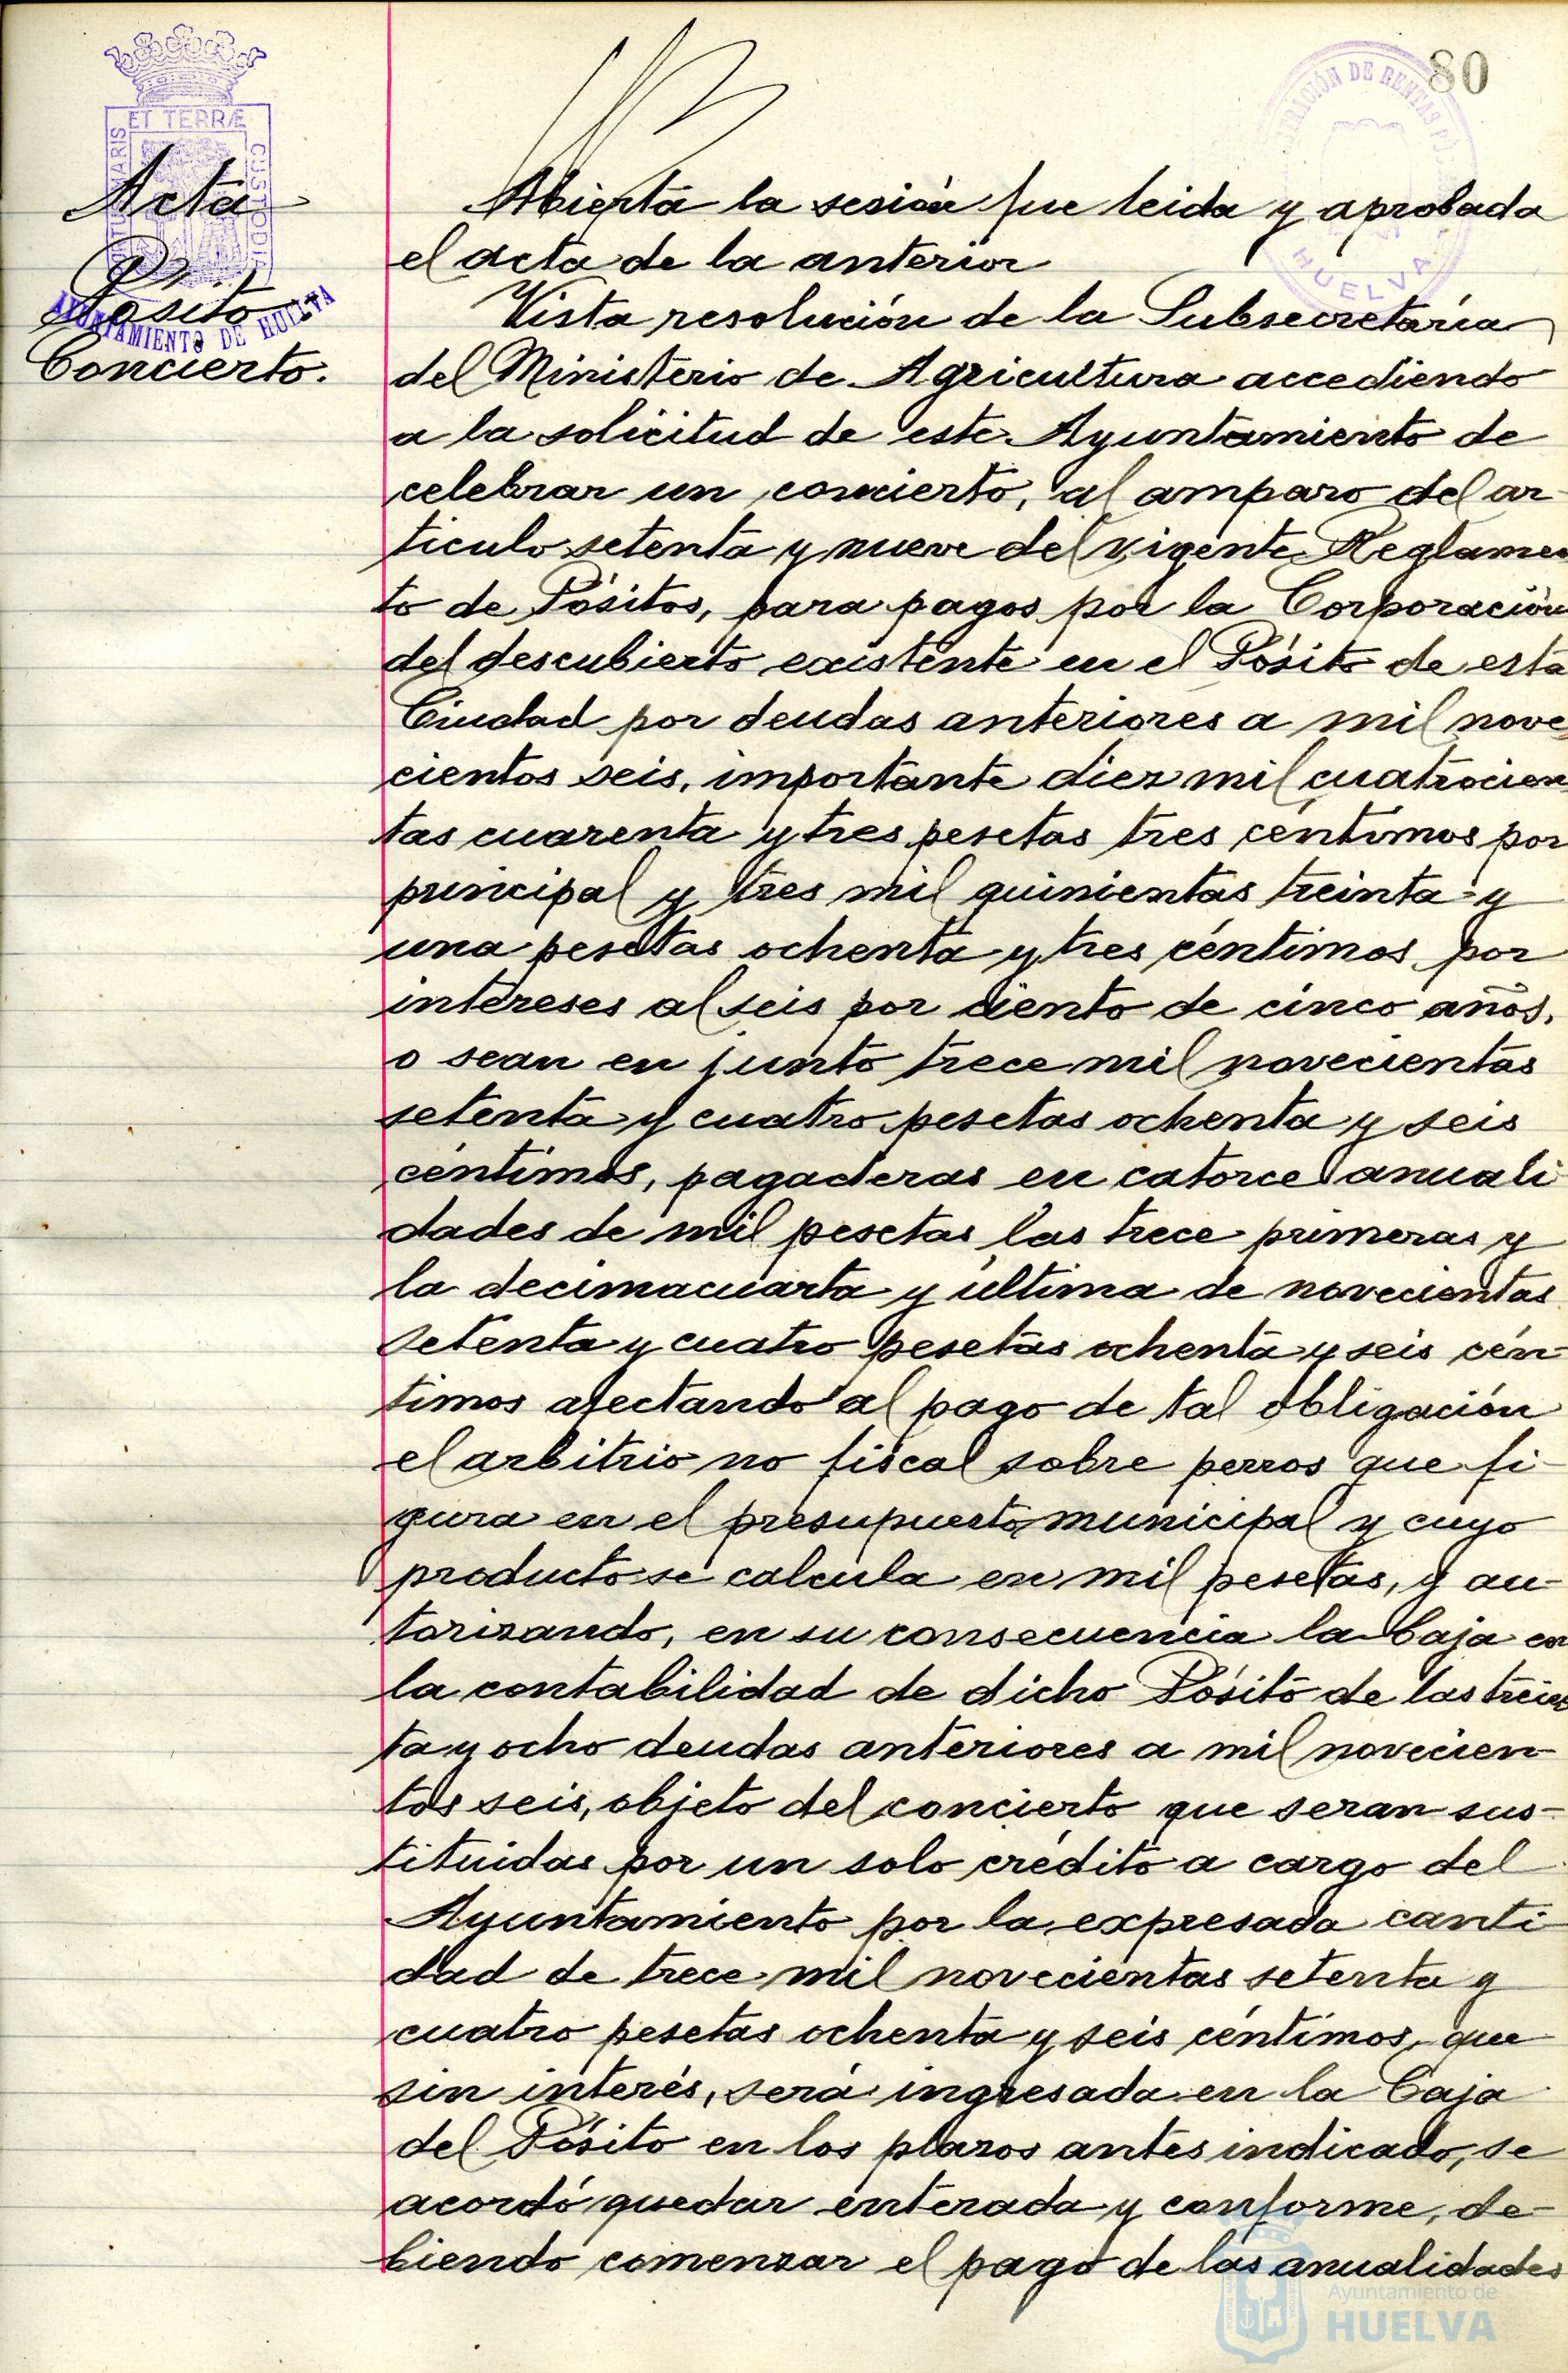 80
ADMINISTRACIÓN DE RENTAS PÚBLICAS
HUELVA
PORTUS MARIS ET TERRÆ CUSTODIA
AYUNTAMIENTO DE HUELVA
Acta
Pósito:
Concierto.
Abierta la sesión fue leida y aprobada
el acta de la anterior
Vista resolución de la Subsecretaría
del Ministerio de Agricultura accediendo
a la solicitud de este Ayuntamiento de
celebrar un concierto, al amparo del ar-
ticulo setenta y nueve del vigente Reglamen
to de Pósitos, para pagos por la Corporación
del descubierto existente en el Pósito de esta
Ciudad por deudas anteriores a mil nove
cientos seis, importante diez mil cuatrocien
tas cuarenta y tres pesetas tres céntimos por
principal y tres mil quinientas treinta y
una pesetas ochenta y tres céntimos por
intereses al seis por ciento de cinco años,
o sean en junto trece mil novecientas
setenta y cuatro pesetas ochenta y seis
céntimos, pagaderas en catorce anuali
dades de mil pesetas las trece primeras y
la decimacuarta y última de novecientas
setenta y cuatro pesetas ochenta y seis cén-
timos afectando al pago de tal obligación
el arbitrio no fiscal sobre perros que fi-
gura en el presupuesto municipal y cuyo
producto se calcula en mil pesetas, y au-
torizando, en su consecuencia la baja en
la contabilidad de dicho Pósito de las trein
ta y ocho deudas anteriores a mil novecien-
tos seis, objeto del concierto que seran sus-
tituidas por un solo crédito a cargo del
Ayuntamiento por la expresada canti-
dad de trece mil novecientas setenta y
cuatro pesetas ochenta y seis céntimos, que
sin interés, será ingresada en la Caja
del Pósito en los plazos antes indicado, se
acordó quedar enterada y conforme, de-
biendo comenzar el pago de las anualidades
Ayuntamiento de
HUELVA